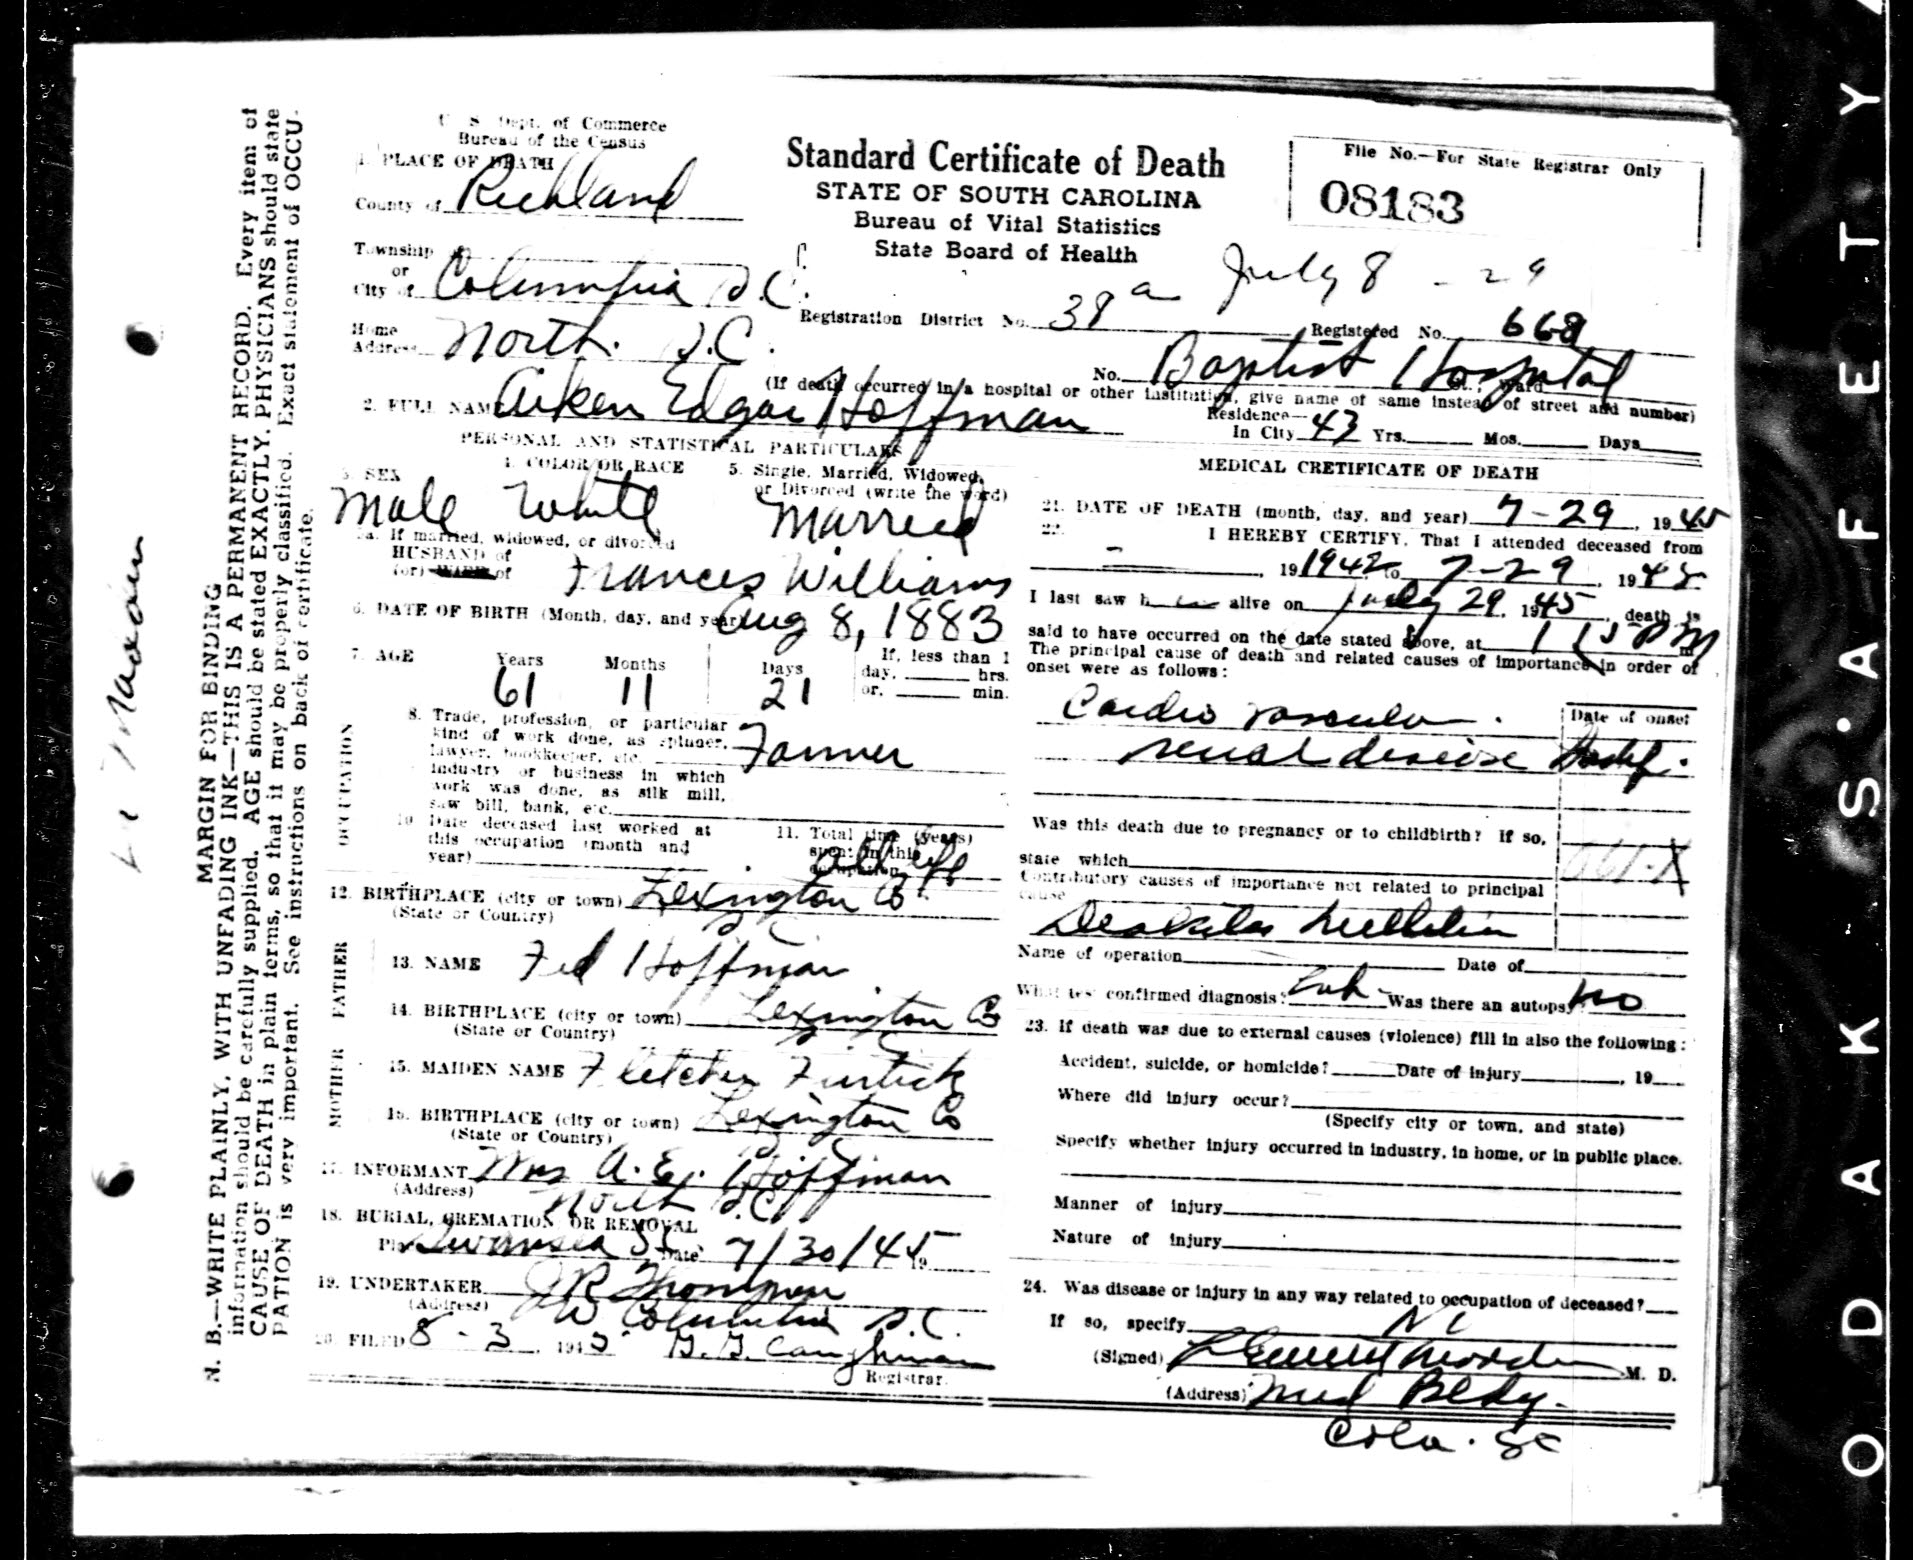 U. S. Dept. of Commerce
Bureau of the Census
1. PLACE OF DEATH
County of Richland
Township
or
City of Columbia S.C.
Home
Address North. S.C.
Standard Certificate of Death
STATE OF SOUTH CAROLINA
Bureau of Vital Statistics
State Board of Health
File No.—For State Registrar Only
08183
July 8 - 29
Registration District No. 38 a
Registered No. 668
No. Baptist Hospital St., Ward
(If death occurred in a hospital or other institution, give name of same instead of street and number)
2. FULL NAME Aiken Edgar Hoffman
Residence—
In City 43 Yrs. Mos. Days
PERSONAL AND STATISTICAL PARTICULARS
3. SEX
Male
4. COLOR OR RACE
White
5. Single, Married, Widowed,
or Divorced (write the word)
Married
5a. If married, widowed, or divorced
HUSBAND of
(or) WIFE of Frances Williams
6. DATE OF BIRTH (Month, day, and year) Aug 8, 1883
7. AGE Years Months Days If, less than 1
day, hrs.
or, min.
61 11 21
OCCUPATION
8. Trade, profession, or particular
kind of work done, as spinner,
lawyer, bookkeeper, etc. Farmer
industry or business in which
work was done, as silk mill,
saw bill, bank, etc.
10. Date deceased last worked at
this occupation (month and
year)
11. Total time (years)
spent in this
occupation all life
12. BIRTHPLACE (city or town) Lexington Co
(State or Country) S C
FATHER
13. NAME Fed Hoffman
14. BIRTHPLACE (city or town) Lexington Co
(State or Country) S C
MOTHER
15. MAIDEN NAME Fletcher Furtick
16. BIRTHPLACE (city or town) Lexington Co
(State or Country) S C
17. INFORMANT Mrs A. E. Hoffman
(Address) North S.C.
18. BURIAL, CREMATION, OR REMOVAL
Swansea SC Date 7/30/45 19
19. UNDERTAKER J R Thompson
(Address) W Columbia S.C.
20. FILED 8-3, 1945 G. G. Caughman
Registrar.
MEDICAL CRETIFICATE OF DEATH
21. DATE OF DEATH (month, day, and year) 7-29, 1945
22. I HEREBY CERTIFY, That I attended deceased from
, 19 1942 to 7-29, 1945
I last saw h alive on July 29, 1945, death is
said to have occurred on the date stated above, at 1 15 P M
The principal cause of death and related causes of importance in order of
onset were as follows:
Date of onset
Cardio vascular
renal disease
Was this death due to pregnancy or to childbirth? If so,
state which
Contributory causes of importance not related to principal
cause
Name of operation Date of
What test confirmed diagnosis? Was there an autopsy? no
23. If death was due to external causes (violence) fill in also the following:
Accident, suicide, or homicide? Date of injury , 19
Where did injury occur?
(Specify city or town, and state)
Specify whether injury occurred in industry, in home, or in public place.
Manner of injury
Nature of injury
24. Was disease or injury in any way related to occupation of deceased?
If so, specify No
(Signed) M. D.
(Address) Med Bldg.
Cola. SC
MARGIN FOR BINDING
N. B.—WRITE PLAINLY, WITH UNFADING INK—THIS IS A PERMANENT RECORD. Every item of
information should be carefully supplied. AGE should be stated EXACTLY. PHYSICIANS should state
CAUSE OF DEATH in plain terms, so that it may be properly classified. Exact statement of OCCU-
PATION is very important. See instructions on back of certificate.
KODAK · S'AFETY